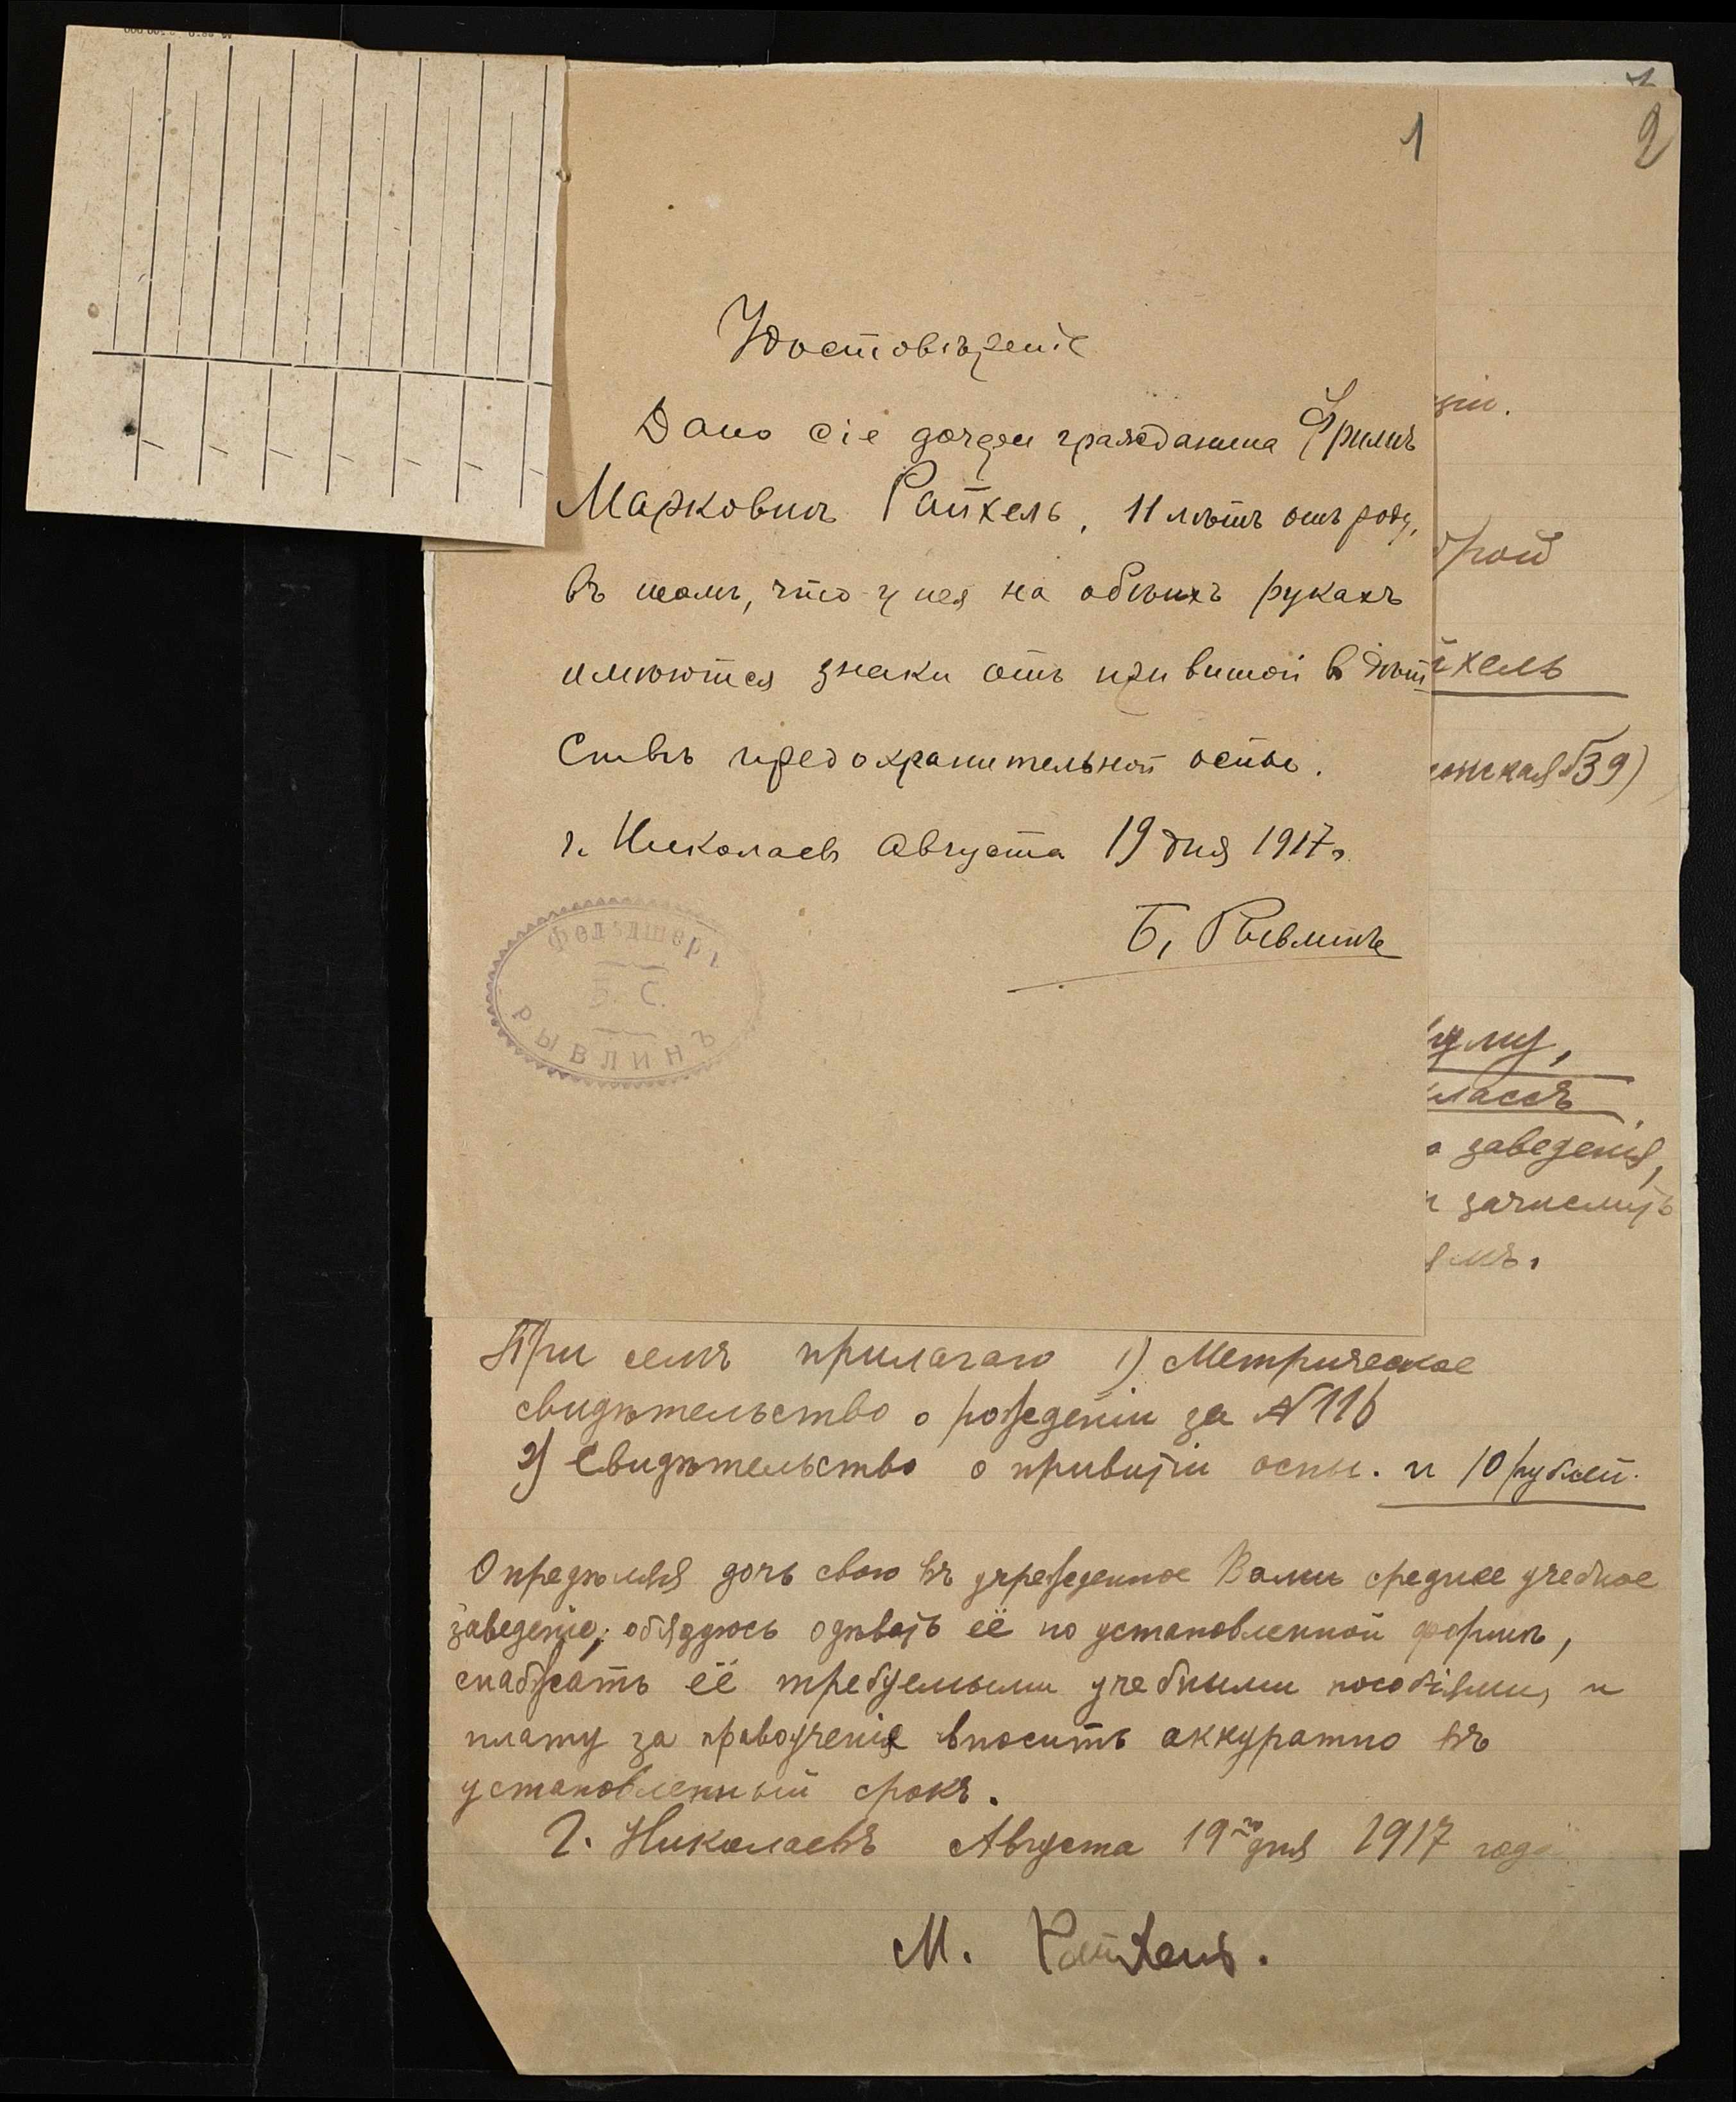 1
2
Удостовѣреніе
Дано сіе дочери гражданина
Марковнѣ Райхель, 11 лѣтъ отъ роду,
въ томъ, что у нея на обѣихъ рукахъ
имѣются знаки отъ привитой в дѣт
ствѣ предохранительной оспы.
г. Николаевъ Августа 19 дня 1917 г.
Б. Рывлинъ
Фельдшеръ
Б. С.
РЫВЛИНЪ
хель
39)
классъ
заведенія,
зачислить
При семъ прилагаю 1) Метрическое
свидѣтельство о рожденіи за №116
2) Свидѣтельство о привитіи оспы. и 10 рублей.
Опредѣляя дочь свою въ учрежденное Вами среднее учебное
заведеніе, обязуюсь одѣвать её по установленной формѣ,
снабжать её требуемыми учебными пособіями, и
плату за правоученіе вносить аккуратно въ
установленный срокъ.
Г. Николаевъ Августа 19го дня 1917 года
М. Райхель.